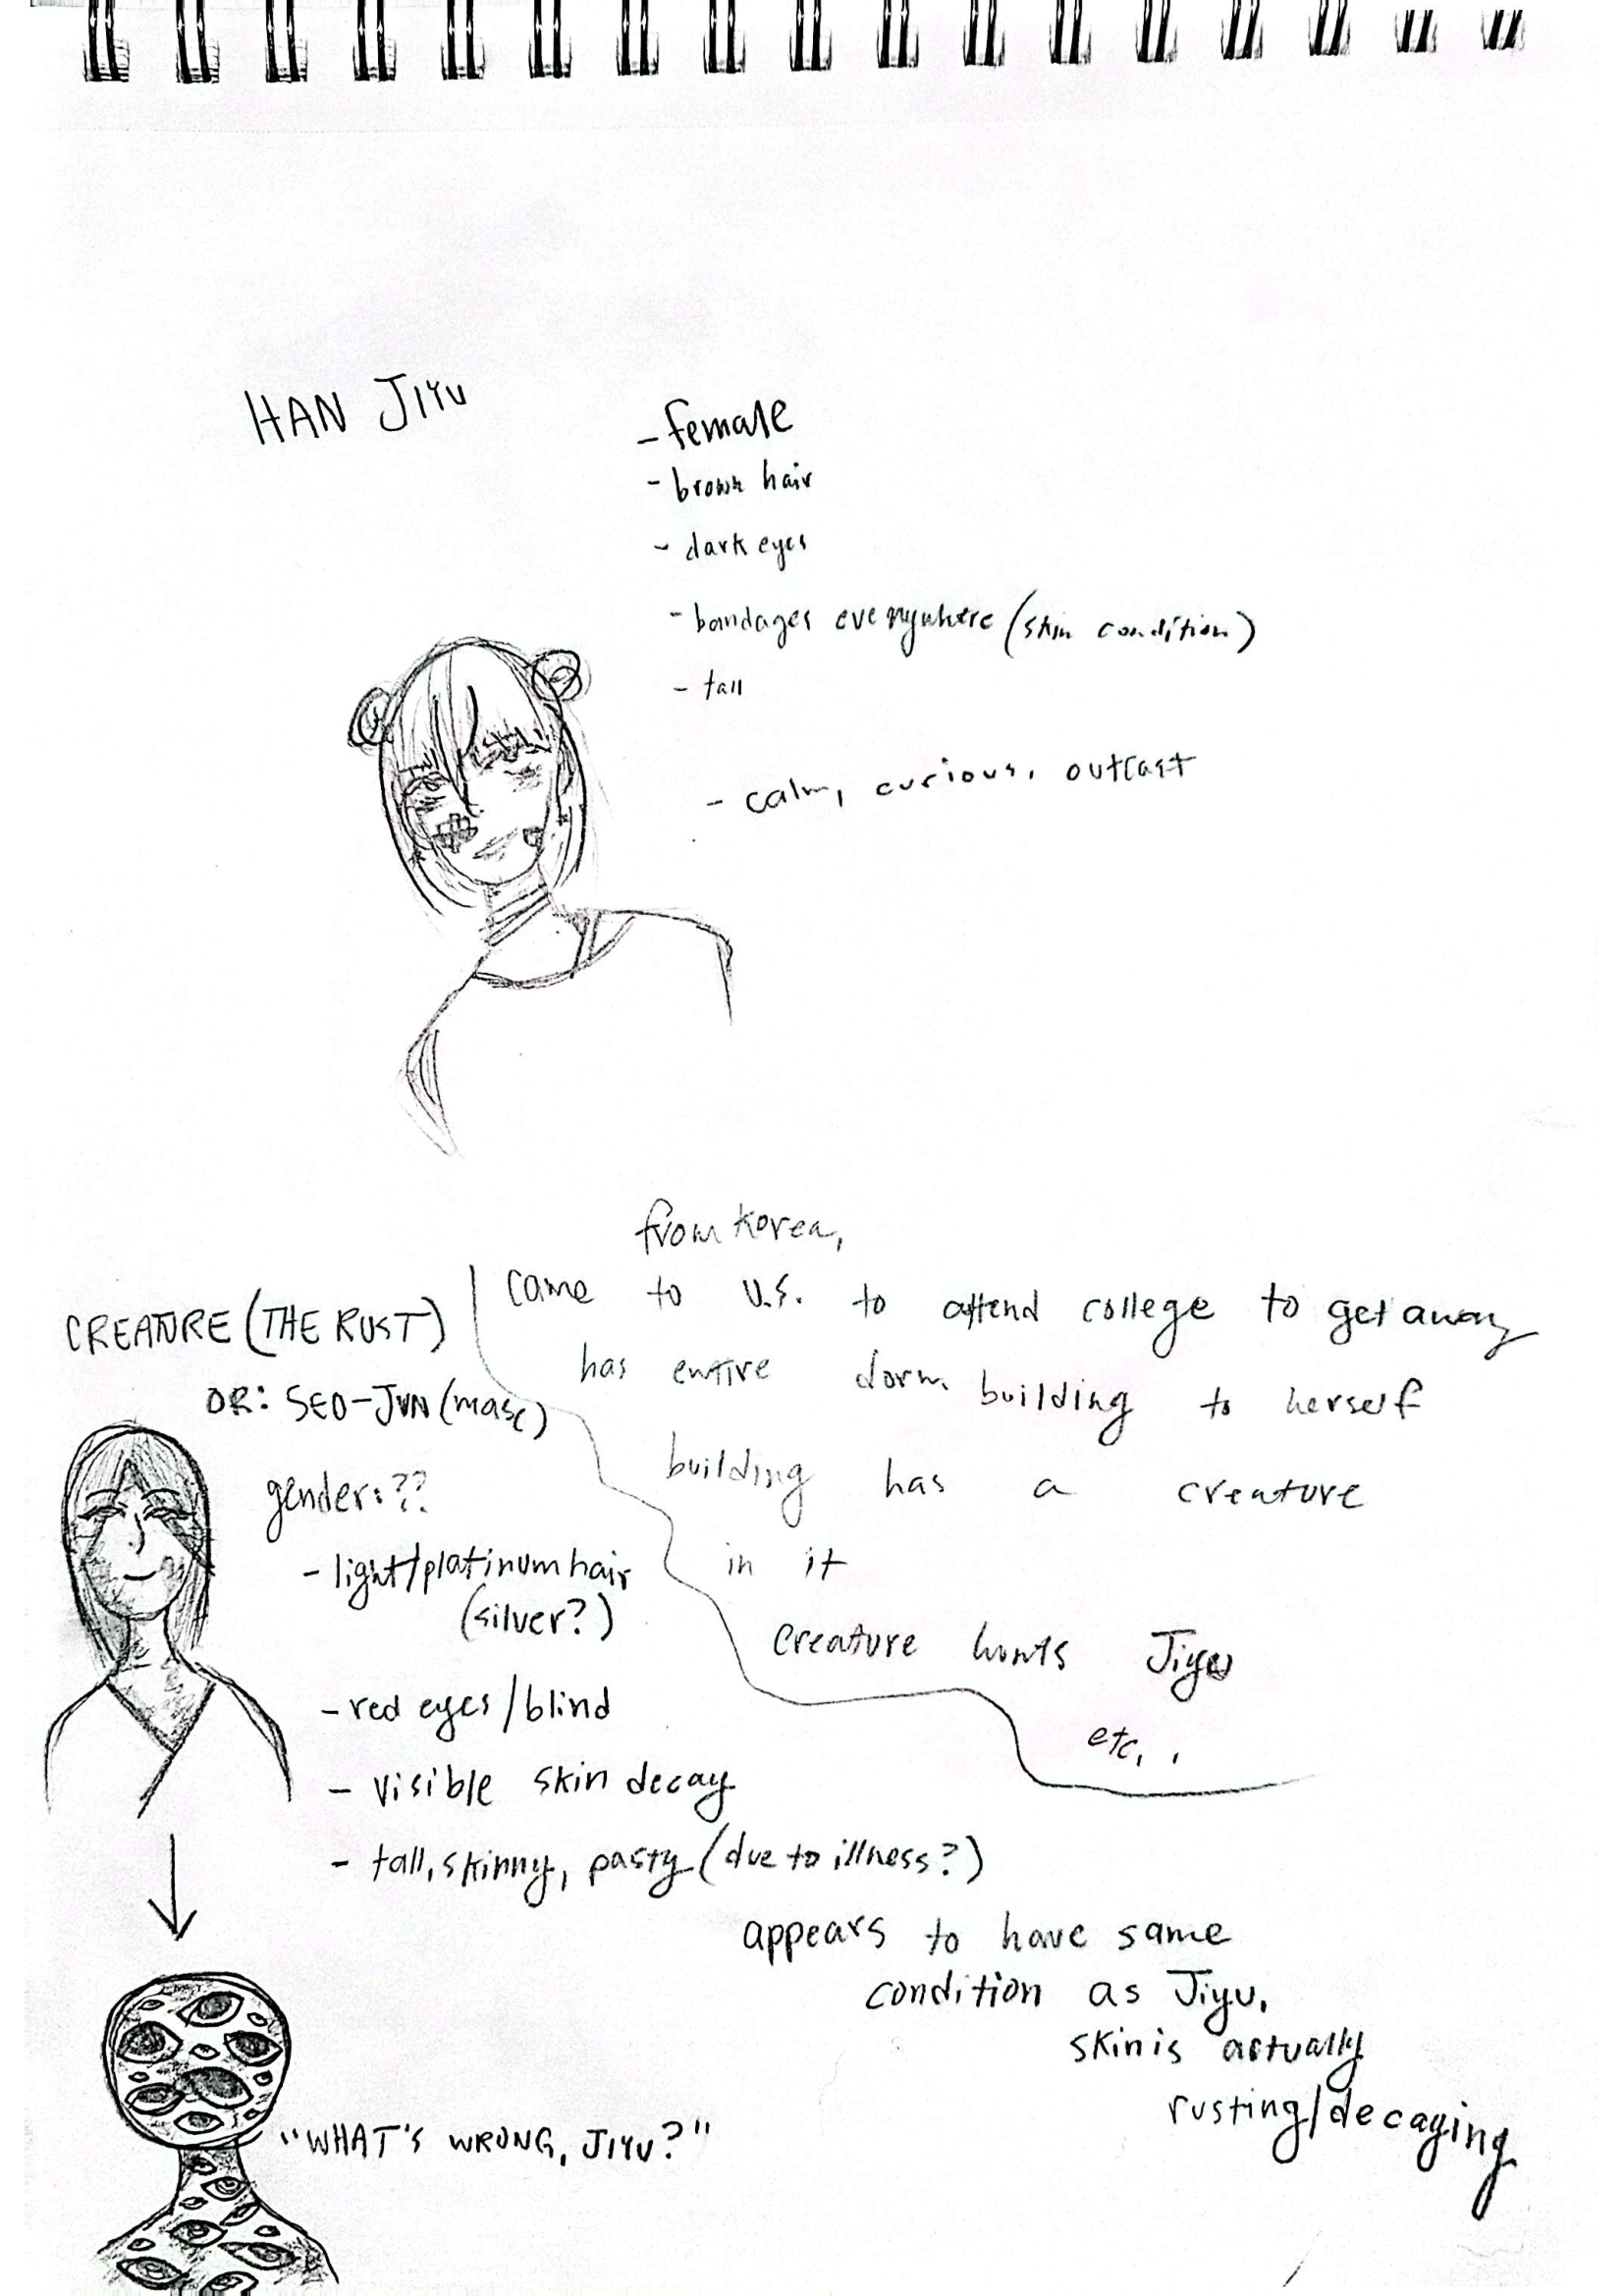 HAN JIYU
- female
- brown hair
- dark eyes
- bandages everywhere (skin condition)
- tall
- calm, curious, outcast
from Korea,
came to U.S. to attend college to get away
has entire dorm building to herself
building has a creature
in it
creature hunts Jiyu
etc. .
CREATURE (THE RUST)
OR: SEO-JUN (masc)
gender: ??
- light/platinum hair
(silver?)
- red eyes/blind
- visible skin decay
- tall, skinny, pasty (due to illness?)
appears to have same
condition as Jiyu.
skin is actually
rusting/decaying
"WHAT'S WRONG, JIYU?"